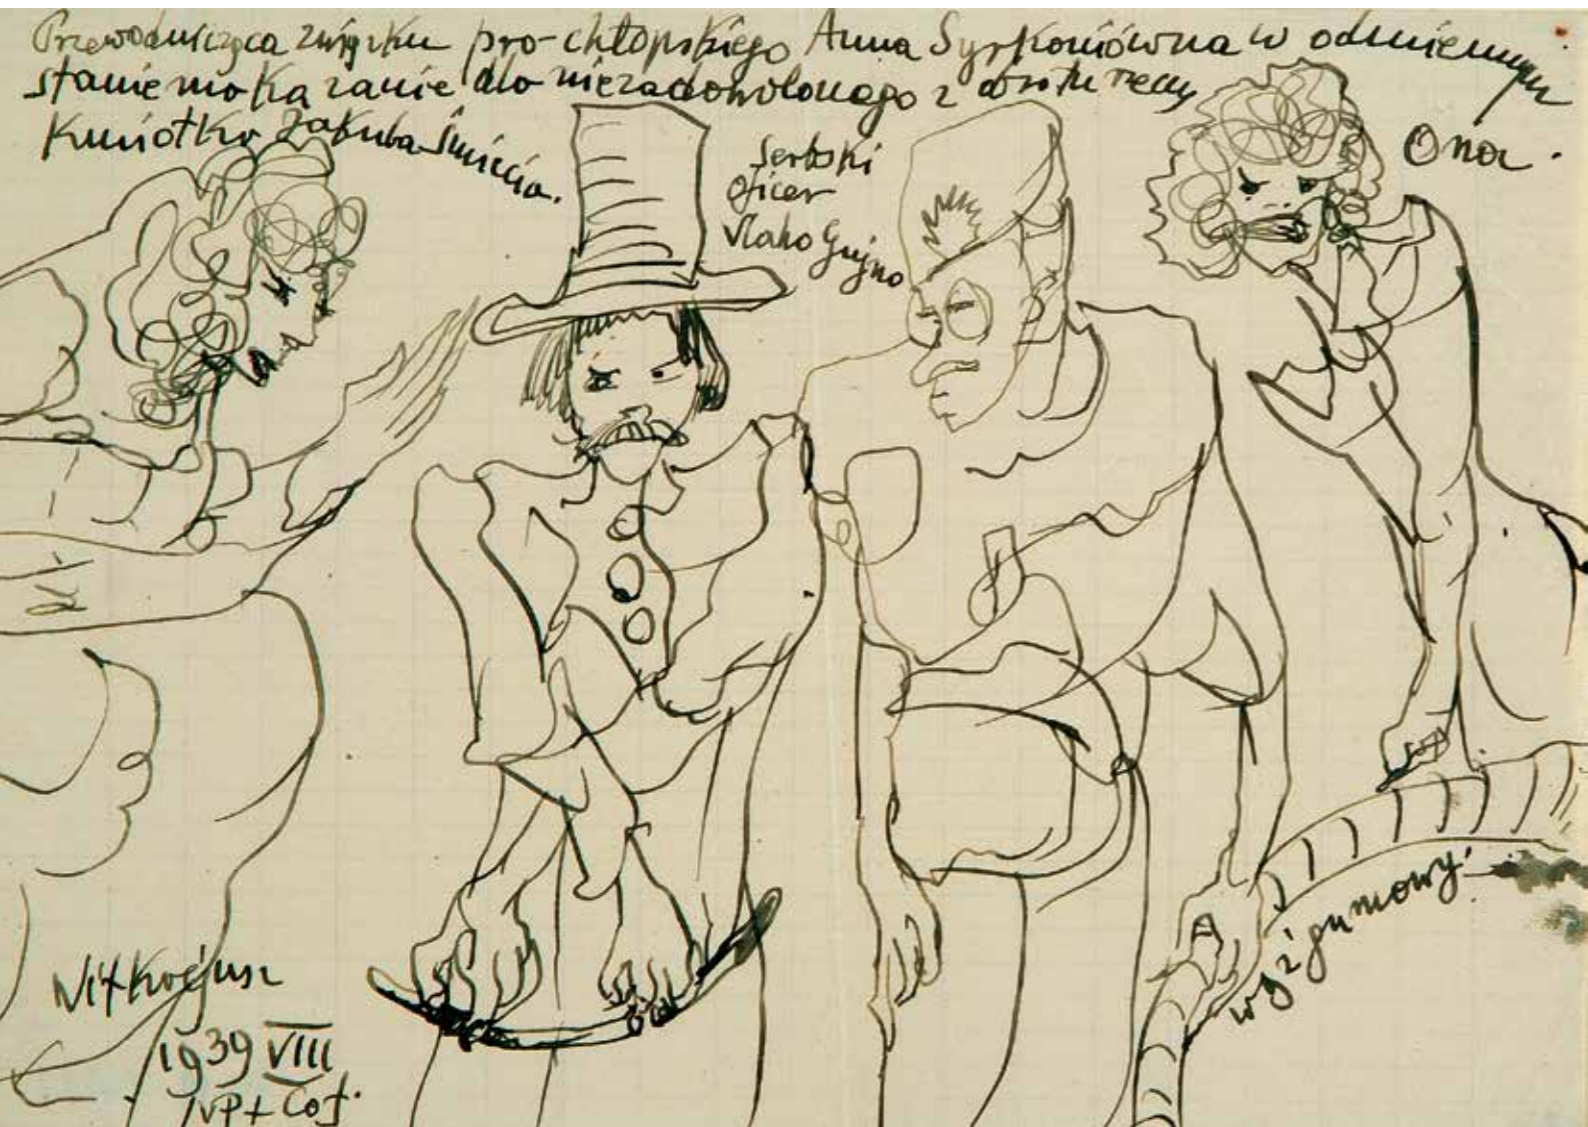 Przewodnicząca związku pro-chłopskiego Anna Syrkoniówna w odmiennym
stanie moka zanie dla niezadowolonego z obrotu rzeczy
Kmiotka Jakuba Śmiecia.
Serbski
oficer
Vlaho Gujno
Ona.
wąż gumowy.
Witkacjusz
1939 VIII
NP + Cof.